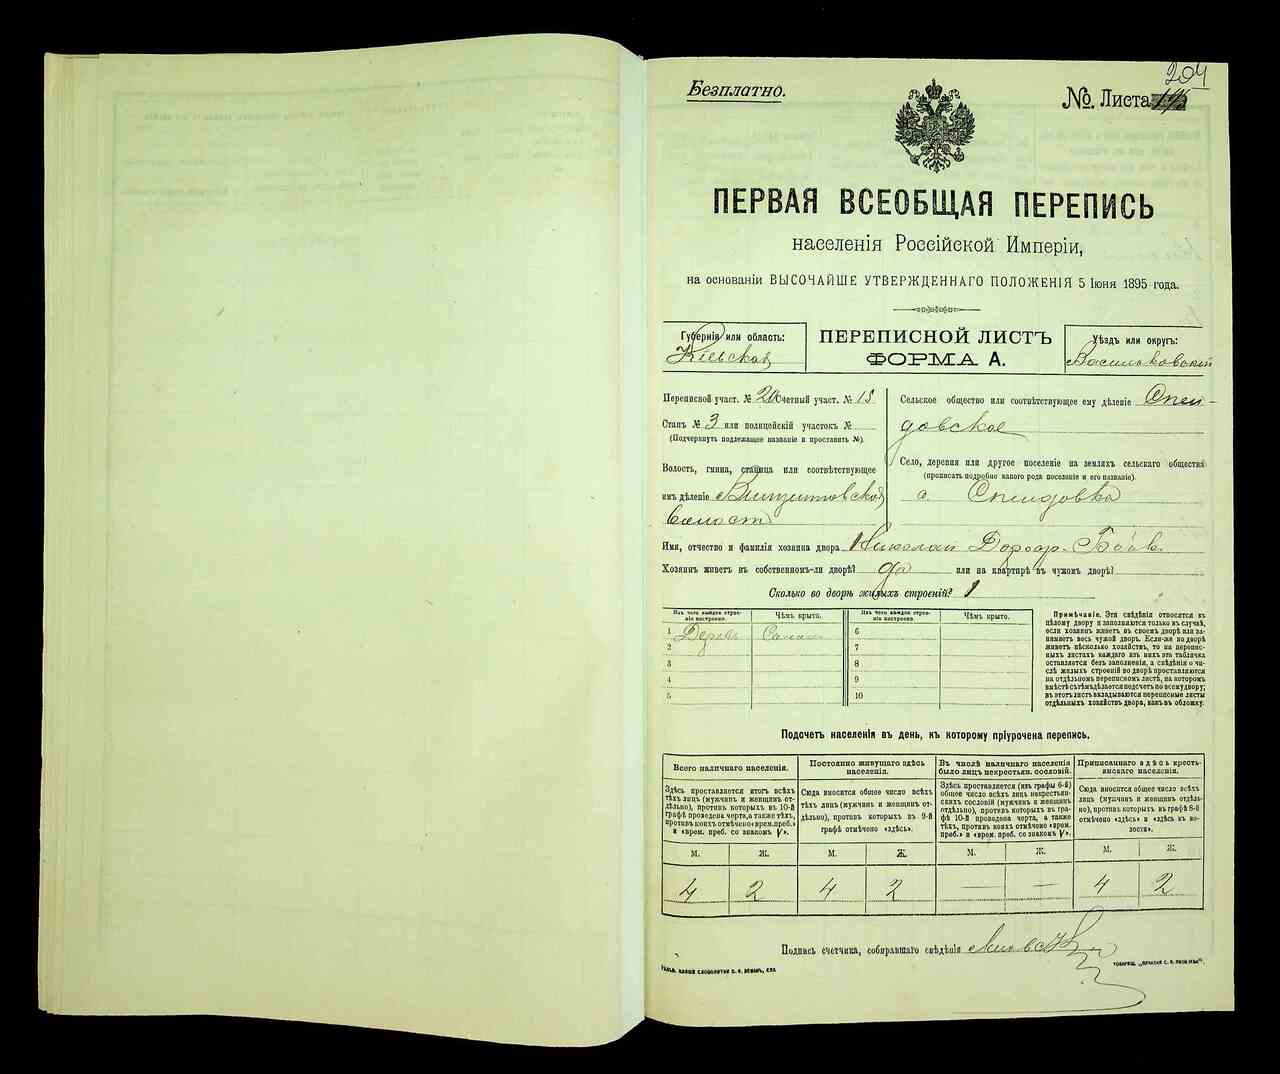 Безплатно.
204
№. Листа
ПЕРВАЯ ВСЕОБЩАЯ ПЕРЕПИСЬ
населенія Россійской Имперіи,
на основаніи ВЫСОЧАЙШЕ УТВЕРЖДЕННАГО ПОЛОЖЕНІЯ 5 Іюня 1895 года.
Губернія или область:
Кіевская
ПЕРЕПИСНОЙ ЛИСТЪ
ФОРМА А.
Уѣздъ или округъ:
Васильковскій
Переписной участ. № 20 Счетный участ. № 15
Станъ № 3 или полицейскій участокъ №
(Подчеркнуть подлежащее названіе и проставить №).
Волость, гмина, станица или соотвѣтствующее
имъ дѣленіе
Сельское общество или соотвѣтствующее ему дѣленіе
Село, деревня или другое поселеніе на земляхъ сельскаго общества
(прописать подробно какого рода поселеніе и его названіе).
с.
Имя, отчество и фамилія хозяина двора Николай
Хозяинъ живетъ въ собственномъ-ли дворѣ? да или на квартирѣ въ чужомъ дворѣ?
Сколько во дворѣ жилыхъ строеній? 1
Изъ чего каждое строеніе построено.
Чѣмъ крыто.
Изъ чего каждое строеніе построено.
Чѣмъ крыто.
1 6
2 7
3 8
4 9
5 10
Примѣчаніе. Эти свѣдѣнія относятся къ
цѣлому двору и заполняются только въ случаѣ,
если хозяинъ живетъ въ своемъ дворѣ или за-
нимаетъ весь чужой дворъ. Если-же во дворѣ
живетъ нѣсколько хозяйствъ, то на перепис-
ныхъ листахъ каждаго изъ нихъ эта табличка
оставляется безъ заполненія, а свѣдѣнія о чи-
слѣ жилыхъ строеній во дворѣ проставляются
на отдѣльномъ переписномъ листѣ, на которомъ
вмѣстѣ съ тѣмъ дѣлается подсчетъ по всему двору;
въ этотъ листъ вкладываются переписные листы
отдѣльныхъ хозяйствъ двора, какъ въ обложку.
Подсчетъ населенія въ день, къ которому пріурочена перепись.
Всего наличнаго населенія.
Здѣсь проставляется итогъ всѣхъ
тѣхъ лицъ (мужчинъ и женщинъ от-
дѣльно), противъ которыхъ въ 10-й
графѣ проведена черта, а также тѣхъ,
противъ коихъ отмѣчено «врем. преб.»
и «врем. преб. со знакомъ V».
Постоянно живущаго здѣсь
населенія.
Сюда вносится общее число всѣхъ
тѣхъ лицъ (мужчинъ и женщинъ от-
дѣльно), противъ которыхъ въ 9-й
графѣ отмѣчено «здѣсь».
Въ числѣ наличнаго населенія
было лицъ некрестьян. сословій.
Здѣсь проставляется (изъ графы 6-й)
общее число всѣхъ лицъ некрестьян-
скихъ сословій (мужчинъ и женщинъ
отдѣльно), противъ которыхъ въ гра-
фѣ 10-й проведена черта, а также
тѣхъ, противъ коихъ отмѣчено «врем.
преб.» и «врем. преб. со знакомъ V».
Приписаннаго здѣсь кресть-
янскаго населенія.
Сюда вносится общее число всѣхъ
лицъ (мужчинъ и женщинъ отдѣль-
но), противъ которыхъ въ графѣ 8-й
отмѣчено «здѣсь» и «здѣсь въ во-
лости».
М. Ж. М. Ж. М. Ж. М. Ж.
4 2 4 2 — — 4 2
Подпись счетчика, собиравшаго свѣдѣнія